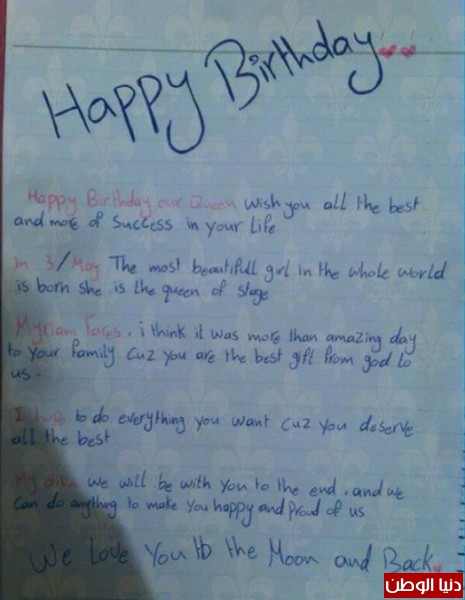 Happy Birthday
Happy Birthday our Queen wish you all the best
and more of success in your life
in 3/May The most beautifull girl in the whole world
is born she is the queen of stage
Myriam Fares. i think it was more than amazing day
to your family cuz you are the best gift from god to
us.
I hope to do everything you want cuz you deserve
all the best
My diva we will be with you to the end. and we
can do anything to make you happy and proud of us
We Love You to the Moon and Back
دنيا الوطن